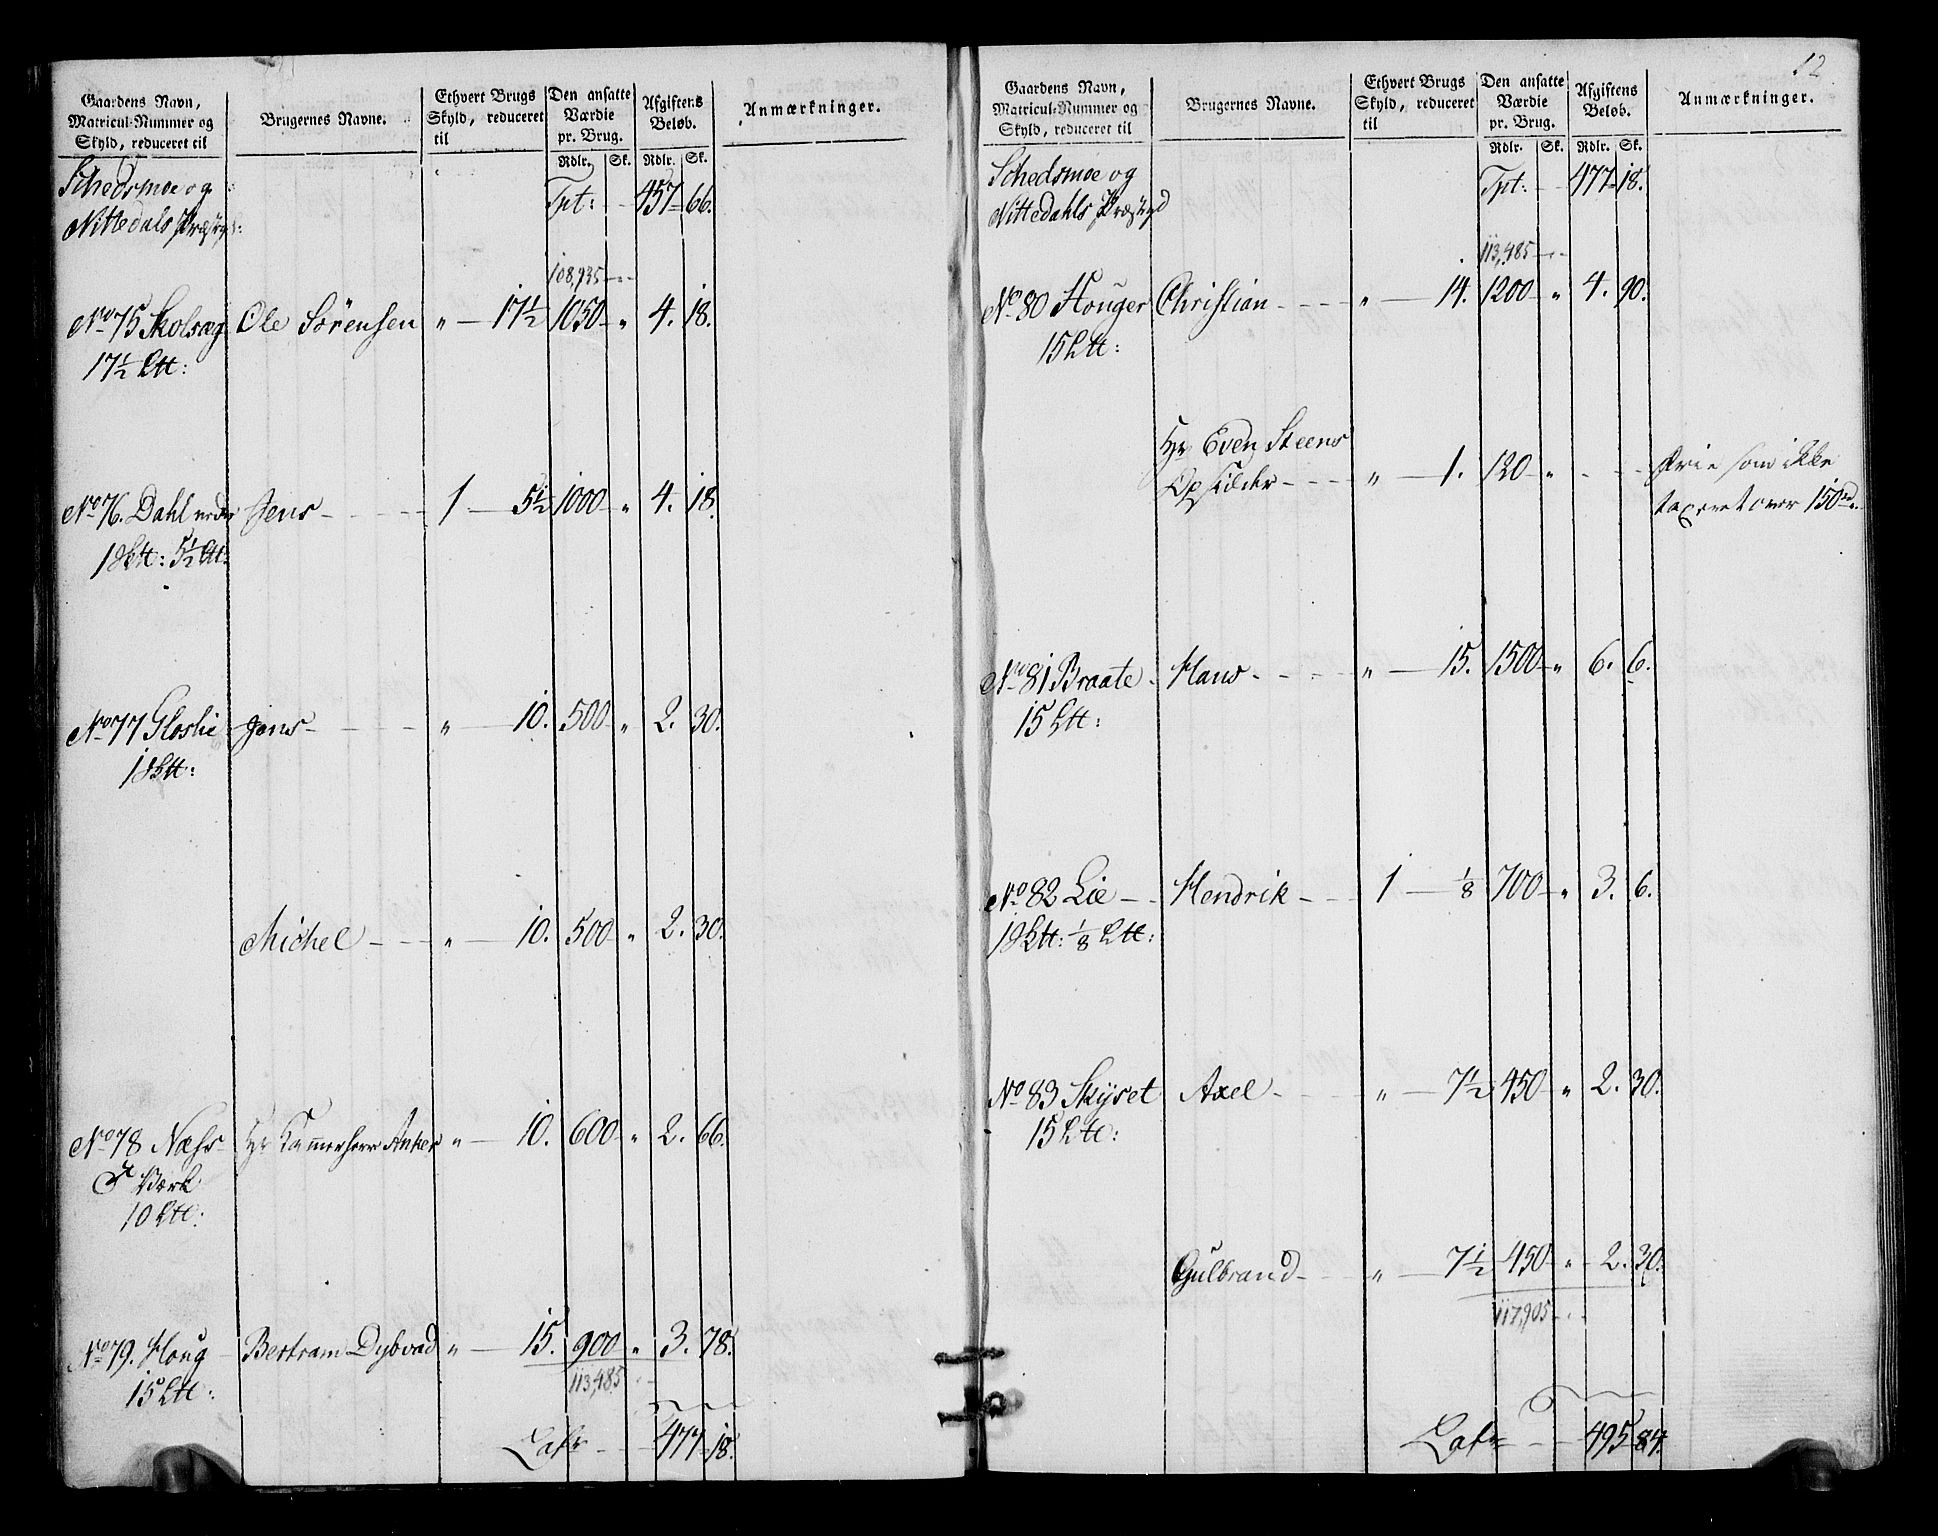 Gaardens Navn,
Matricul-Nummer og
Skyld, reduceret til
Brugernes Navne.
Ethvert Brugs
Skyld, reduceret
til
Den ansatte
Værdie
pr. Brug.
Rdlr. Sk.
Afgiftens
Beløb.
Rdlr. Sk.
Anmærkninger.
Schedsmoe og
Nittedals Præstgd:
Tpt: 457 66.
108,935
No 75 Skolsæg Ole Sörensen " 17 1/2 1050 " 4. 18.
17 1/2 Ltt:
No 76. Dahl neder Jens 1 5 1/2 1000 " 4. 18.
1 Sktt: 5 1/2 Ltt:
No 77 Gloslie Jens " 10. 500 " 2. 30.
1 Sktt:
Michel " 10. 500 " 2. 30.
No 78 Næhs Hr Kammerherr Anker " 10. 600 " 2. 66.
J Værk
10 Ltt:
No 79. Houg Bertram Dybvad " 15. 900 " 3. 78.
15 Ltt:
113,485
Latr 477 18.
12
Gaardens Navn,
Matricul-Nummer og
Skyld, reduceret til
Brugernes Navne.
Ethvert Brugs
Skyld, reduceret
til
Den ansatte
Værdie
pr. Brug.
Rdlr. Sk.
Afgiftens
Beløb.
Rdlr. Sk.
Anmærkninger.
Schedsmoe og
Nittedahls Præstgd
Tpt: 477 18.
113,485
No 80 Houger Christian " 14. 1200 " 4. 90.
15 Ltt:
Hr Even Steens
Opsidder " 1. 120 " Frie som ikke
taxeret over 150 rd.
No 81 Braate Hans " 15. 1500 " 6. 6.
15 Ltt:
No 82 Lie Hendrik 1 1/8 700 " 3. 6.
1 Sktt: 1/8 Ltt:
No 83 Skyset Axel " 7 1/2 450 " 2. 30.
15 Ltt:
Gulbrand " 7 1/2 450 " 2. 30.
117,905
Latr 495 84.